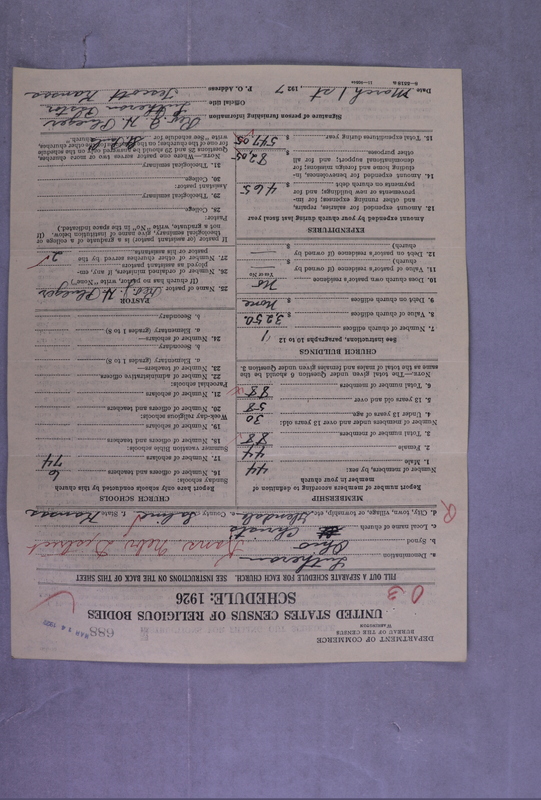 DEPARTMENT OF COMMERCE
BUREAU OF THE CENSUS
WASHINGTON
688
MAR 14 1927
UNITED STATES CENSUS OF RELIGIOUS BODIES
SCHEDULE: 1926
03
FILL OUT A SEPARATE SCHEDULE FOR EACH CHURCH. SEE INSTRUCTIONS ON THE BACK OF THIS SHEET
a. Denomination Lutheran
b. Synod Ohio Kans. Nebr. District
c. Local name of church Christ's
d. City, town, village, or township, etc. Glendale e. County Salina f. State Kansas
MEMBERSHIP
Report number of members according to definition of
member in your church
Number of members, by sex:
1. Male 44
2. Female 44
3. Total number of members 88
Number of members under and over 13 years old:
4. Under 13 years of age 30
5. 13 years old and over 58
6. Total number of members 88
NOTE.—The total given under Question 6 should be the
same as the total of males and females given under Question 3.
CHURCH BUILDINGS
See instructions, paragraphs 10 to 12
7. Number of church edifices 1
8. Value of church edifices $ 3,250
9. Debt on church edifices $ None
10. Does church own pastor's residence No
Yes or No
11. Value of pastor's residence (if owned by
church) $
12. Debt on pastor's residence (if owned by
church) $
EXPENDITURES
Amount expended by your church during last fiscal year
13. Amount expended for salaries, repairs,
and other running expenses; for im-
provements or new buildings; and for
payments on church debt $ 465
14. Amount expended for benevolences, in-
cluding home and foreign missions; for
denominational support; and for all
other purposes $ 82.05
15. Total expenditures during year $ 547.05
CHURCH SCHOOLS
Report here only schools conducted by this church
Sunday schools:
16. Number of officers and teachers 6
17. Number of scholars 74
Summer vacation Bible schools:
18. Number of officers and teachers
19. Number of scholars
Week-day religious schools:
20. Number of officers and teachers
21. Number of scholars
Parochial schools:
22. Number of administrative officers
23. Number of teachers—
a. Elementary (grades 1 to 8)
b. Secondary
24. Number of scholars—
a. Elementary (grades 1 to 8)
b. Secondary
PASTOR
25. Name of pastor Rev. J. H. Plueger
(If church has no pastor, write "None")
26. Number of ordained ministers, if any, em-
ployed as assistant pastors
27. Number of other churches served by the
pastor or his assistants 2
If pastor (or assistant pastor) is a graduate of a college or
theological seminary, give name of institution below. (If
not a graduate, write "No" in the space provided.)
Pastor:
28. College
29. Theological seminary
Assistant pastor:
30. College
31. Theological seminary
NOTE.—Where one pastor serves two or more churches,
Questions 28 and 29 should be answered only on the schedule
for one of the churches; on the schedules for other churches,
write "See schedule for church."
Signature of person furnishing information Rev. J. H. Plueger
Official title Lutheran Pastor
Date March 1st, 1927 P. O. Address Tescott Kansas